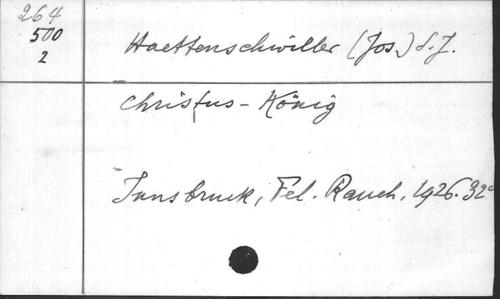 264
500
2
Haettenschwiller (Jos.) S.J.
Christus-König
Innsbruck, Fel. Rauch, 1926. 32°